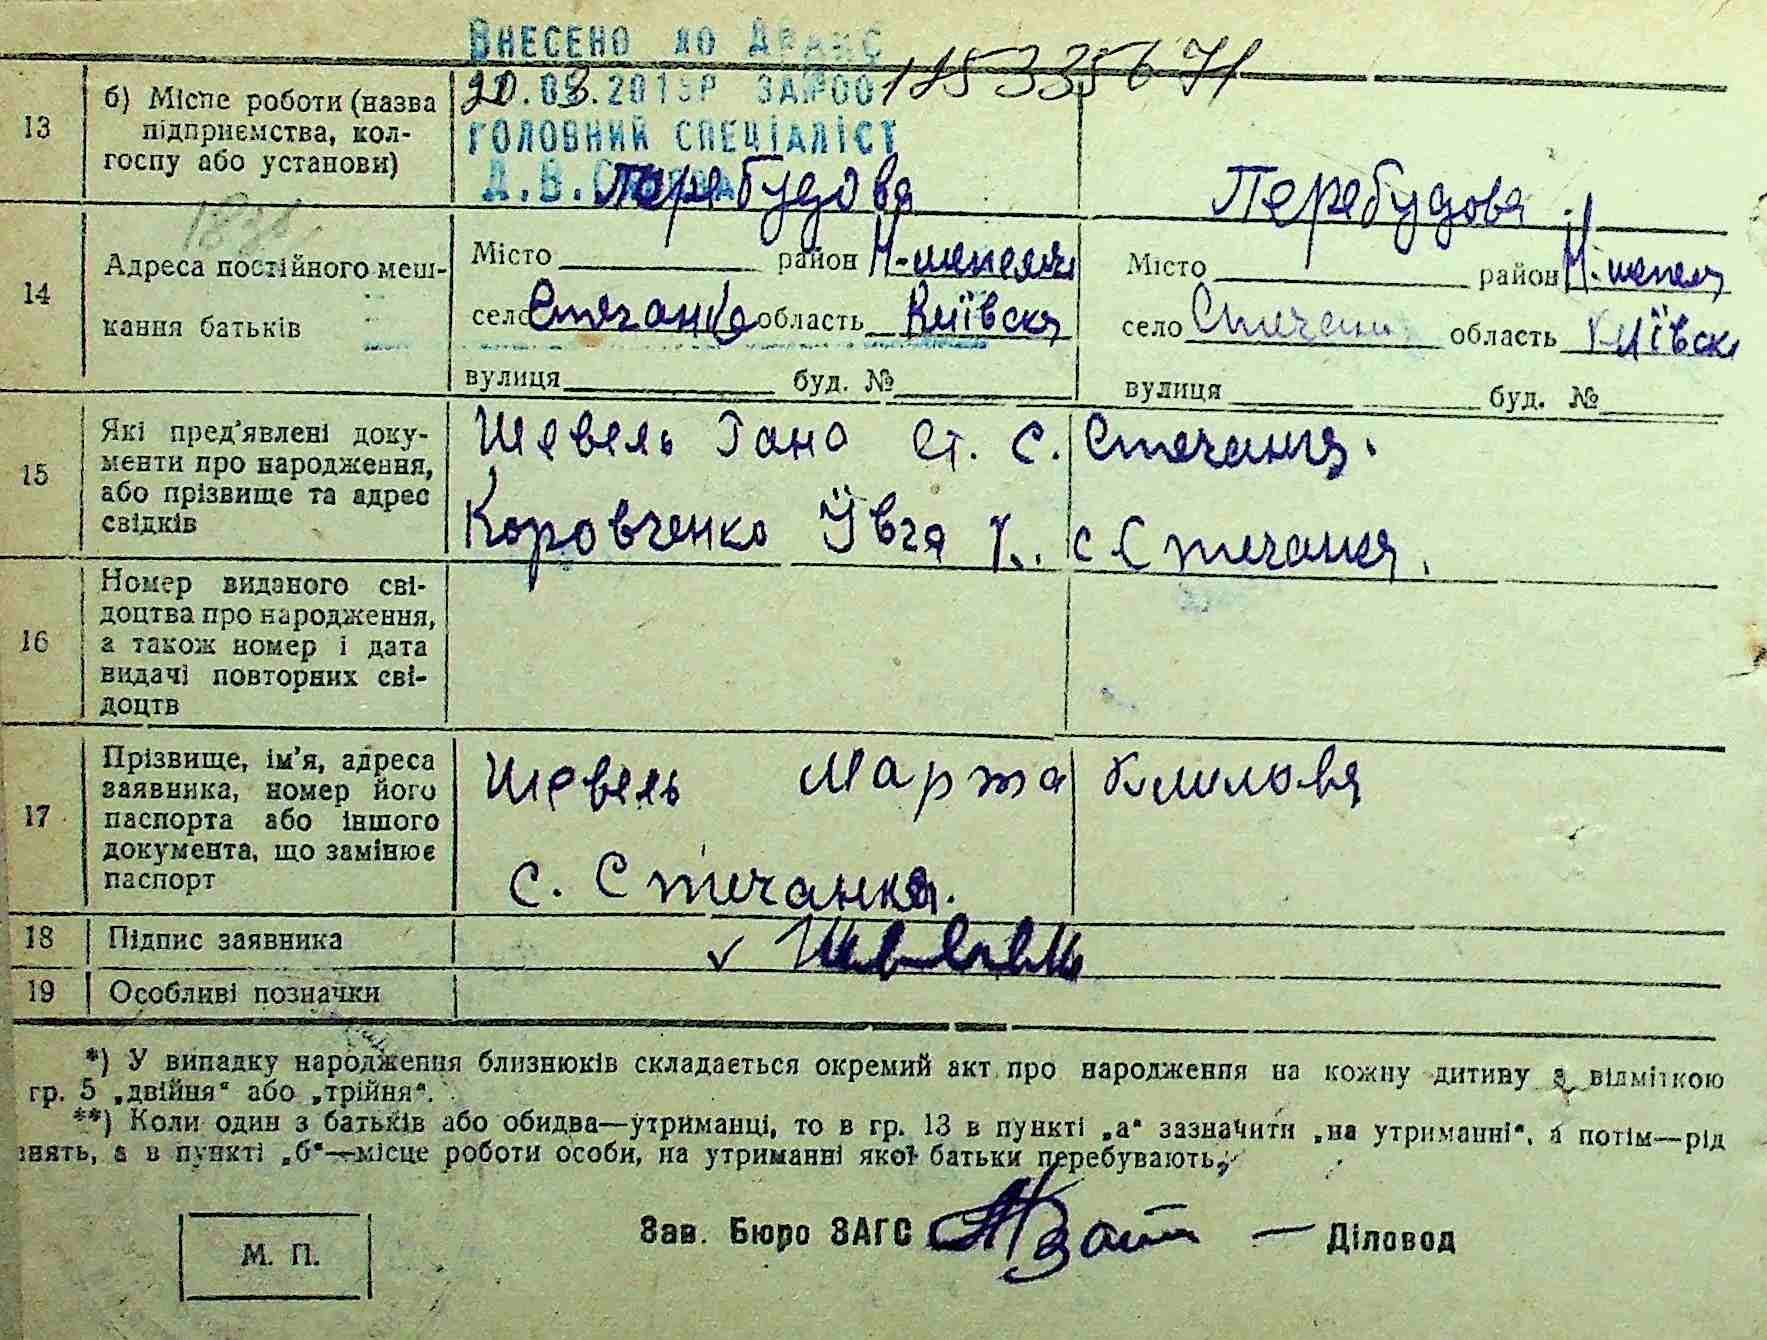 ВНЕСЕНО ДО ДРАЦС
20.03.2015Р ЗА №00125335671
ГОЛОВНИЙ СПЕЦІАЛІСТ
Д.В.
13
б) Місце роботи (назва
підприємства, кол-
госпу або установи)
Перебудова
Перебудова
183
14
Адреса постійного меш-
кання батьків
Місто район Н-шепелич
село Стечанка область Київська
вулиця буд. №
Місто район Н-шепел
село Стечанк область Київськ
вулиця буд. №
15
Які пред'явлені доку-
менти про народження,
або прізвище та адрес
свідків
Шевель Гана Ст. С. Стечанка.
Коровченко Ївга К. с Стечанка.
16
Номер виданого сві-
доцтва про народження,
а також номер і дата
видачі повторних сві-
доцтв
17
Прізвище, ім'я, адреса
заявника, номер його
паспорта або іншого
документа, що замінює
паспорт
Шевель Марта Климовна
с. Стечанка.
18
Підпис заявника
✓
19
Особливі позначки
*) У випадку народження близнюків складається окремий акт про народження на кожну дитину з відміткою
гр. 5 „двійня“ або „трійня“.
**) Коли один з батьків або обидва—утриманці, то в гр. 13 в пункті „а“ зазначити „на утриманні“, а потім—рід
знять, а в пункті „б“—місце роботи особи, на утриманні якої батьки перебувають.
Зав. Бюро ЗАГС — Діловод
М. П.